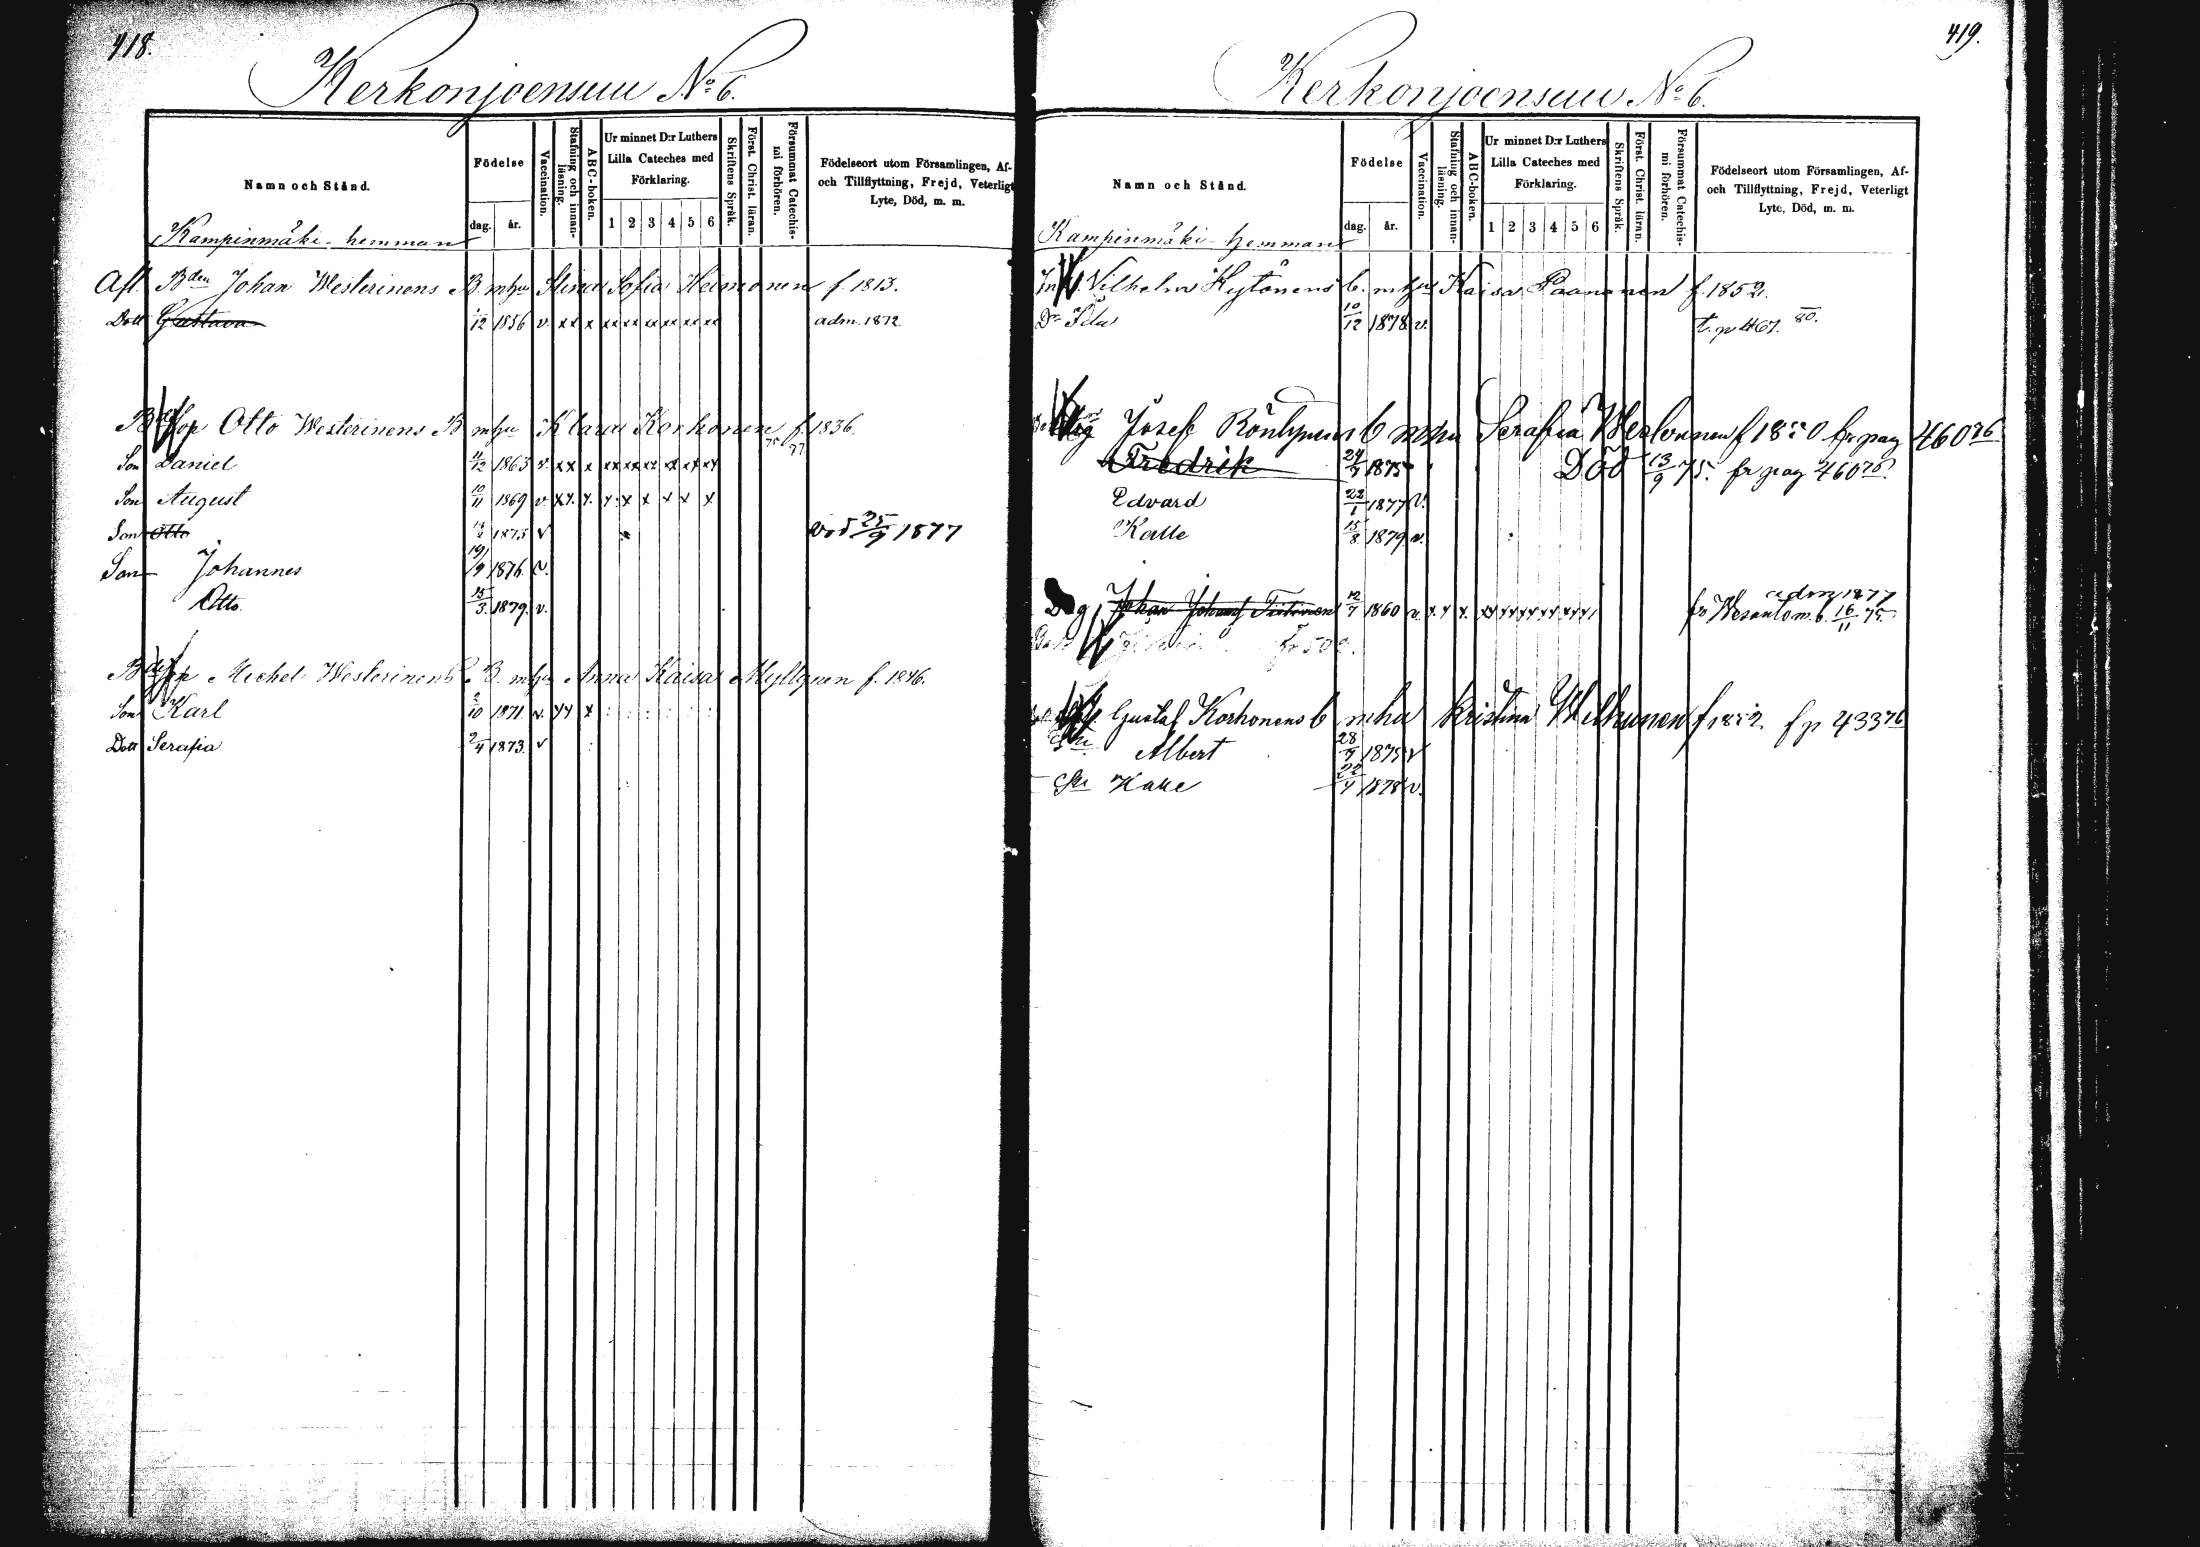 418.
Kerkonjoensuu No 6.
Namn och Stånd.
Födelse
dag. år.
Vaccination.
Stafning och innanläsning.
ABC-boken.
Ur minnet D:r Luthers Lilla Cateches med Förklaring.
1 2 3 4 5 6
Skriftens Språk.
Först. Christ. läran.
Försummat Catechismi förhören.
Födelseort utom Församlingen, Af- och Tillflyttning, Frejd, Veterligt Lyte, Död, m. m.
Kampinmäki hemman
Afl. Bden Johan Westerinens B. mhu Stina Sofia Heimonen f. 1813.
Dott Gustava 12 1856 v. xx x xx xx xx xx xx xx adm. 1872
Otto Westerinens B mhu Klara Korhonen f. 1836.
75 77
Son Daniel 11/12 1863 v. xx x xx xx xx xx xx xx
Son August 10/11 1869 v xx. x. x x x x x x
Son Otto 1875 v död 25/9 1877
Son Johannes 19/9 1876. v.
Otto. 15/3 1879. v.
Michel Westerinens B. mhu Anna Kaisa Myllynen f. 1846.
Son Karl 2/10 1871. v. xx x
Dott Serafia 2/4 1873. v
419.
Kerkonjoensuu No 6.
Namn och Stånd.
Födelse
dag. år.
Vaccination.
Stafning och innanläsning.
ABC-boken.
Ur minnet D:r Luthers Lilla Cateches med Förklaring.
1 2 3 4 5 6
Skriftens Språk.
Först. Christ. läran.
Försummat Catechismi förhören.
Födelseort utom Församlingen, Af- och Tillflyttning, Frejd, Veterligt Lyte, Död, m. m.
Kampinmäki hemman
Vilhelm Kytönens b. mhu Kaisa Paananen f. 1852.
Dr Ida 10/12 1878 v. t. p 467. 80.
Josef Rönkynens b mhu Serafia f 1850 fr pag 460 76
Fredrik 24/7 1875 Död 13/9 75. fr pag 460 76
Edvard 22/1 1877 v.
Kalle 15/8 1879. v.
adm 1877
Johan 12/7 1860 v. x x x. xx xx xx xx xx xx fr Wesanto m. b. 16/11 75
fr 50
Gustaf Korhonens b mhu Kristina f 1852. f p 433 76
Albert 28/9 1875 v
Kalle 22/4 1878 v.